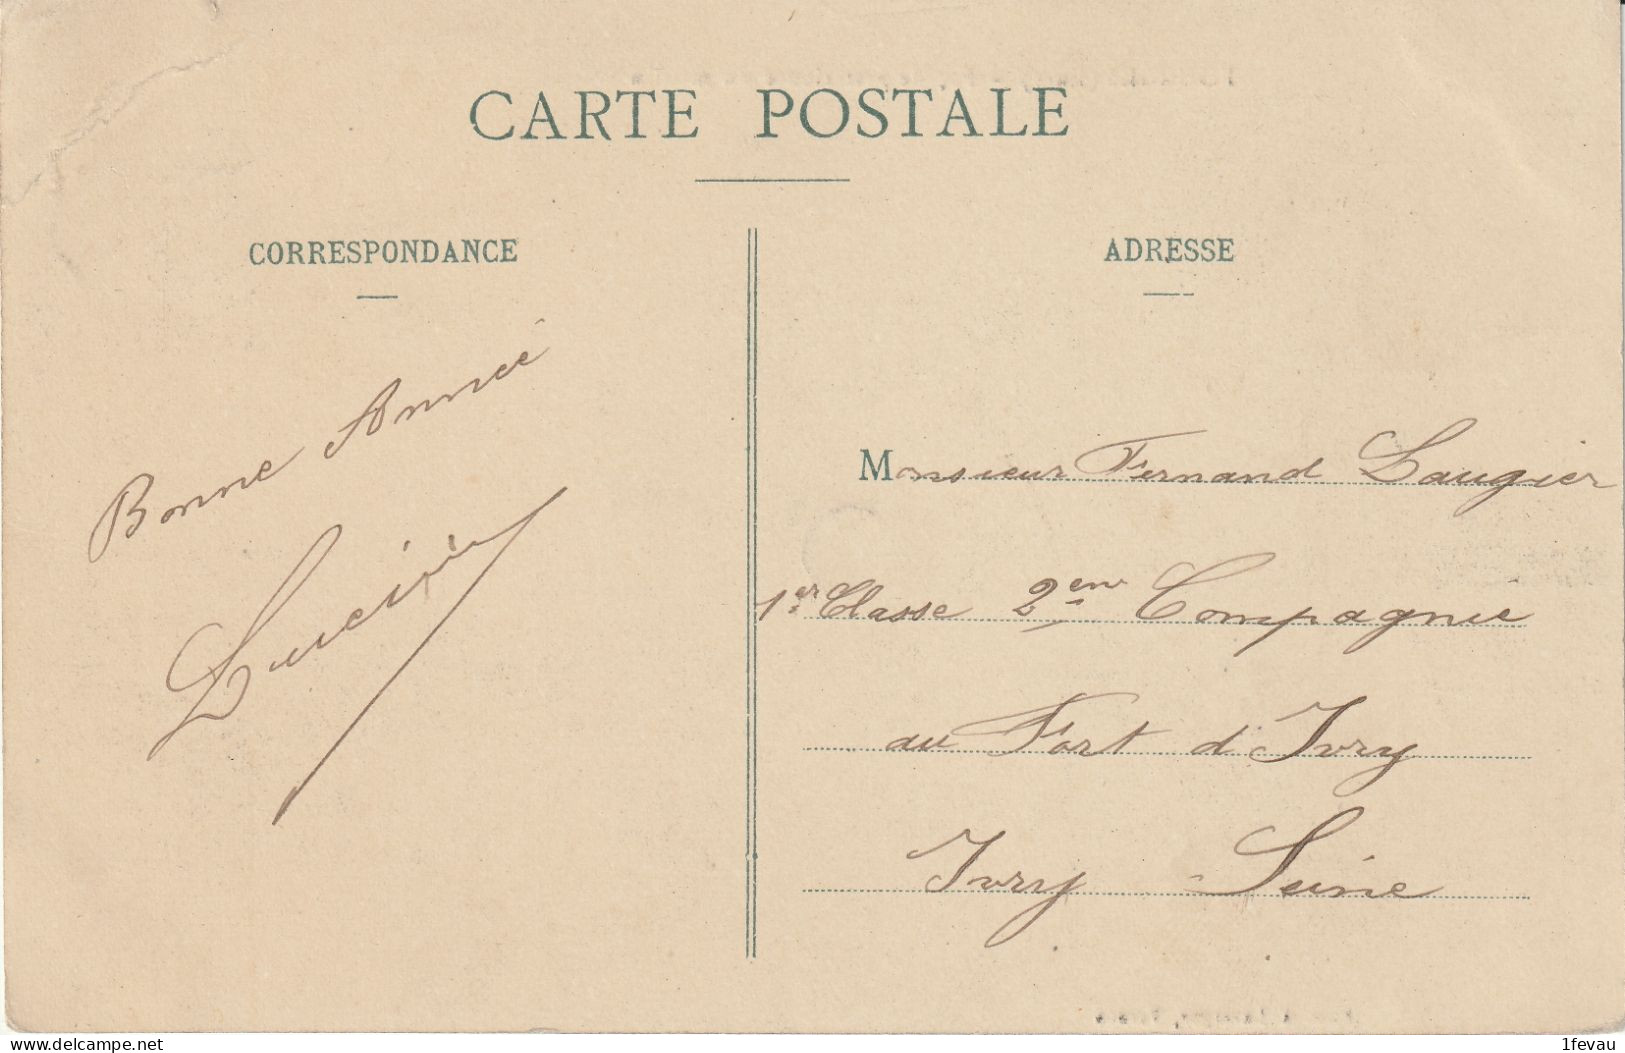 CARTE POSTALE
CORRESPONDANCE
Bonne Année
Lucien
ADRESSE
Monsieur Fernand Laugier
1er Classe 2eme Compagnie
au Fort d'Ivry
Ivry - Seine
www.delcampe.net
1fevau